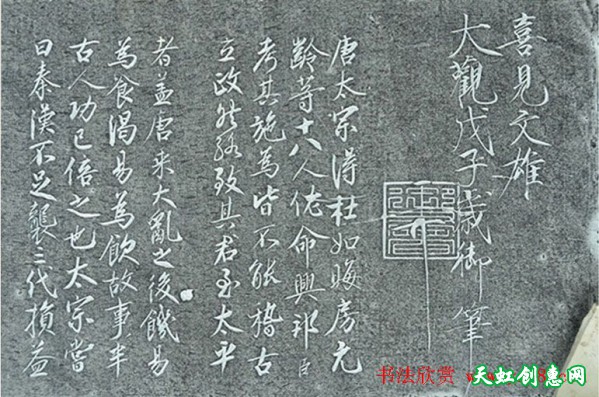 喜見文雄
大觀戊子歲御筆
唐太宗得杜如晦房元
齡等十八人佐命興邦臣
考其施為皆不能稽古
立政致其君至太平
者蓋唐大亂之後饑易
為食渴易為飲故事半
古人功已倍之也太宗嘗
曰秦漢不足襲三代損益
书法欣赏
天虹创意网